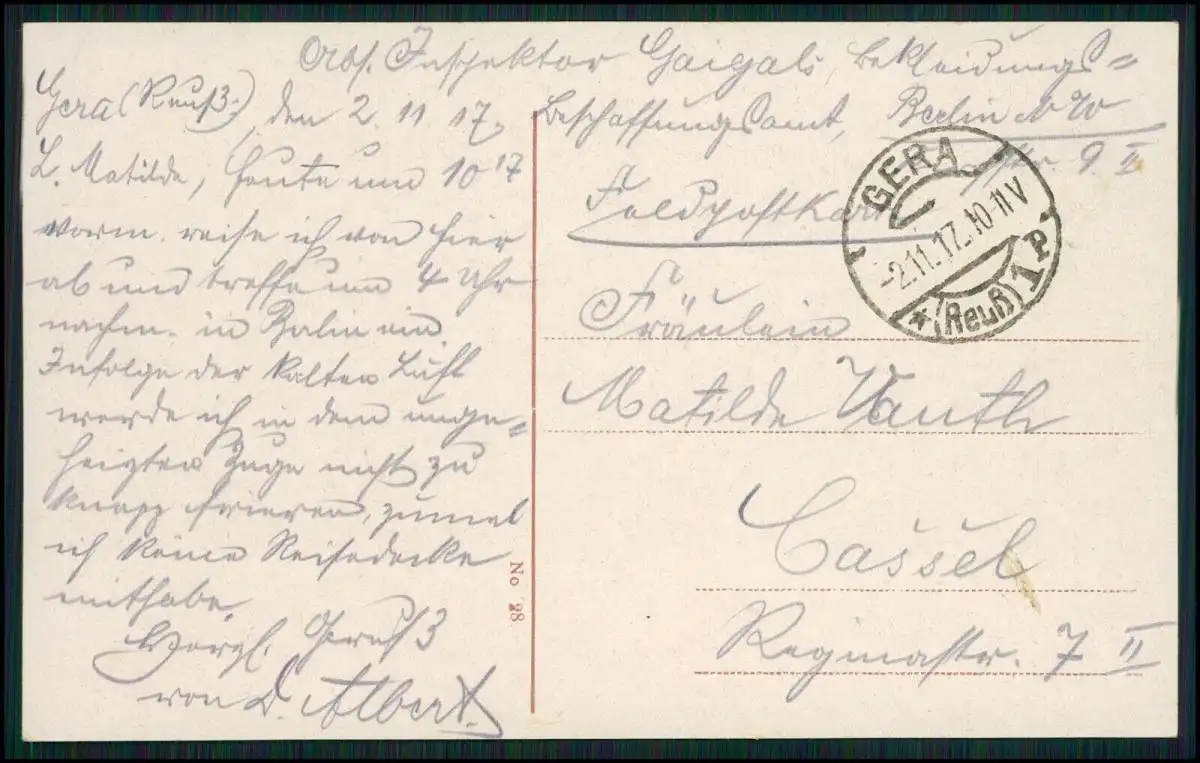 Abs. Inspektor Gaigals, Bekleidungs=
Beschaffungsamt, Berlin NW
str. 9 II
Gera (Reuß.), den 2. 11. 17.
L. Matilde, heute um 10 17
vorm. reise ich von hier
ab und treffe um 4 Uhr
nachm. in Berlin ein.
Infolge der kalten Luft
werde ich in dem unge=
heizten Zuge nicht zu
knapp frieren, zumal
ich keine Reisedecke
mithabe.
Herzl. Gruß
von D. Albert.
Feldpostkarte
Fräulein
Matilde Wauth
Cassel
Reginastr. 7 II
GERA
-2.11.17. 10-11V
* (Reuß) 1 P
No 98